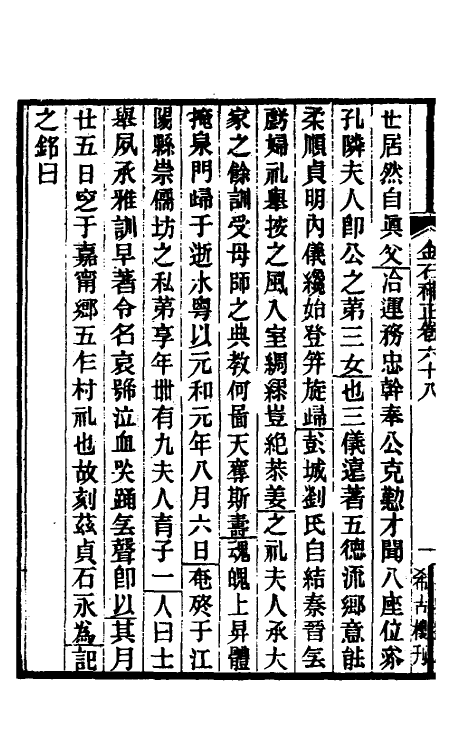 金石補正卷六十八
一 希古樓刊
世居然自眞父洽運務忠幹奉公克懃才聞八座位叅
孔隣夫人即公之第三女也三儀遠著五德流鄉意䏻
柔順貞明內儀纔始登笄旋歸彭城劉氏自結秦晉㒵
虧婦礼舉按之風入室綢繆豈絶恭姜之礼夫人承大
家之餘訓受母師之典教何啚天奪斯壽魂魄上昇體
掩泉門歸于逝水粵以元和元年八月六日奄終于江
陽縣崇儒坊之私第享年卌有九夫人育子一人曰士
舉夙承雅訓早著令名哀號泣血哭踊㒵聲即以其月
廿五日窆于嘉甯鄉五乍村礼也故刻茲貞石永為記
之銘曰